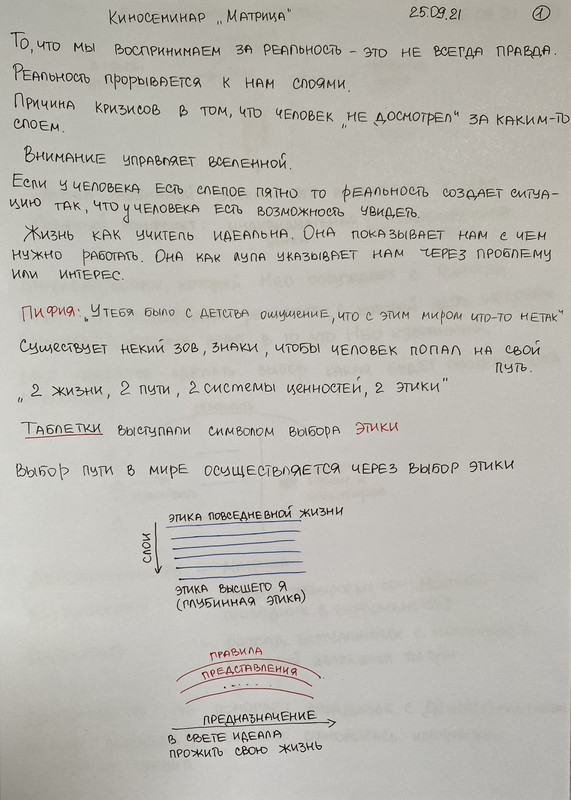 Киносеминар „Матрица“ 25.09.21 1
То, что мы воспринимаем за реальность – это не всегда правда.
Реальность прорывается к нам слоями.
Причина кризисов в том, что человек „не досмотрел“ за каким-то
слоем.
Внимание управляет вселенной.
Если у человека есть слепое пятно то реальность создает ситуа-
цию так, что у человека есть возможность увидеть.
Жизнь как учитель идеальна. Она показывает нам с чем
нужно работать. Она как лупа указывает нам через проблему
или интерес.
Пифия: „У тебя было с детства ощущение, что с этим миром что-то нетак“
Существует некий зов, знаки, чтобы человек попал на свой
путь.
„2 жизни, 2 пути, 2 системы ценностей, 2 этики“
Таблетки выступали символом выбора этики
Выбор пути в мире осуществляется через выбор этики
этика повседневной жизни
слои
этика высшего Я
(глубинная этика)
правила
представления
......
предназначение
в свете идеала
прожить свою жизнь